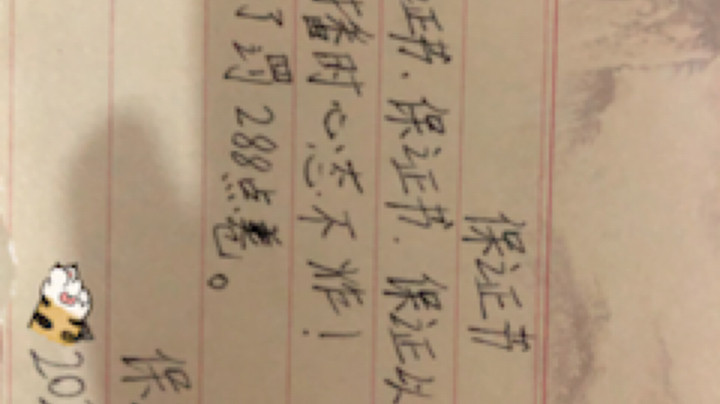 保证书
证书、保证书、保证以
播时心态不炸！
了罚288点卷。
保
202